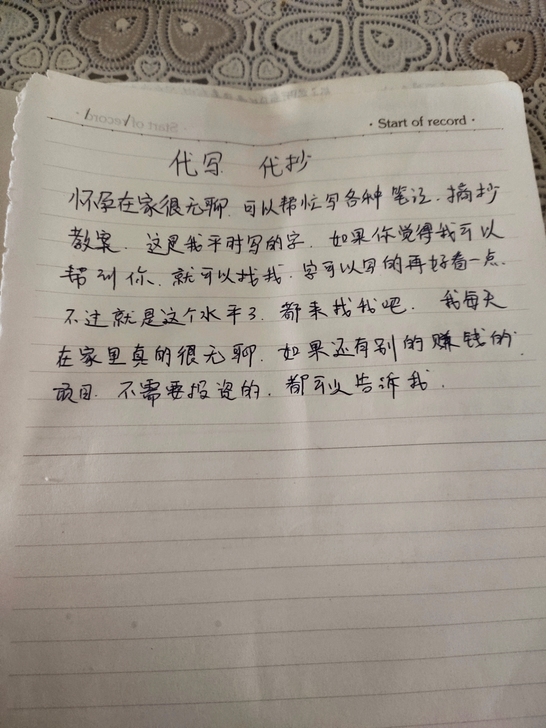 · Start of record ·
代写 代抄
怀孕在家很无聊.可以帮忙写各种笔记.摘抄
教案.这是我平时写的字.如果你觉得我可以
帮到你.就可以找我.字可以写的再好看一点.
不过就是这个水平了.都来找我吧.我每天
在家里真的很无聊.如果还有别的赚钱的
项目.不需要投资的.都可以告诉我.